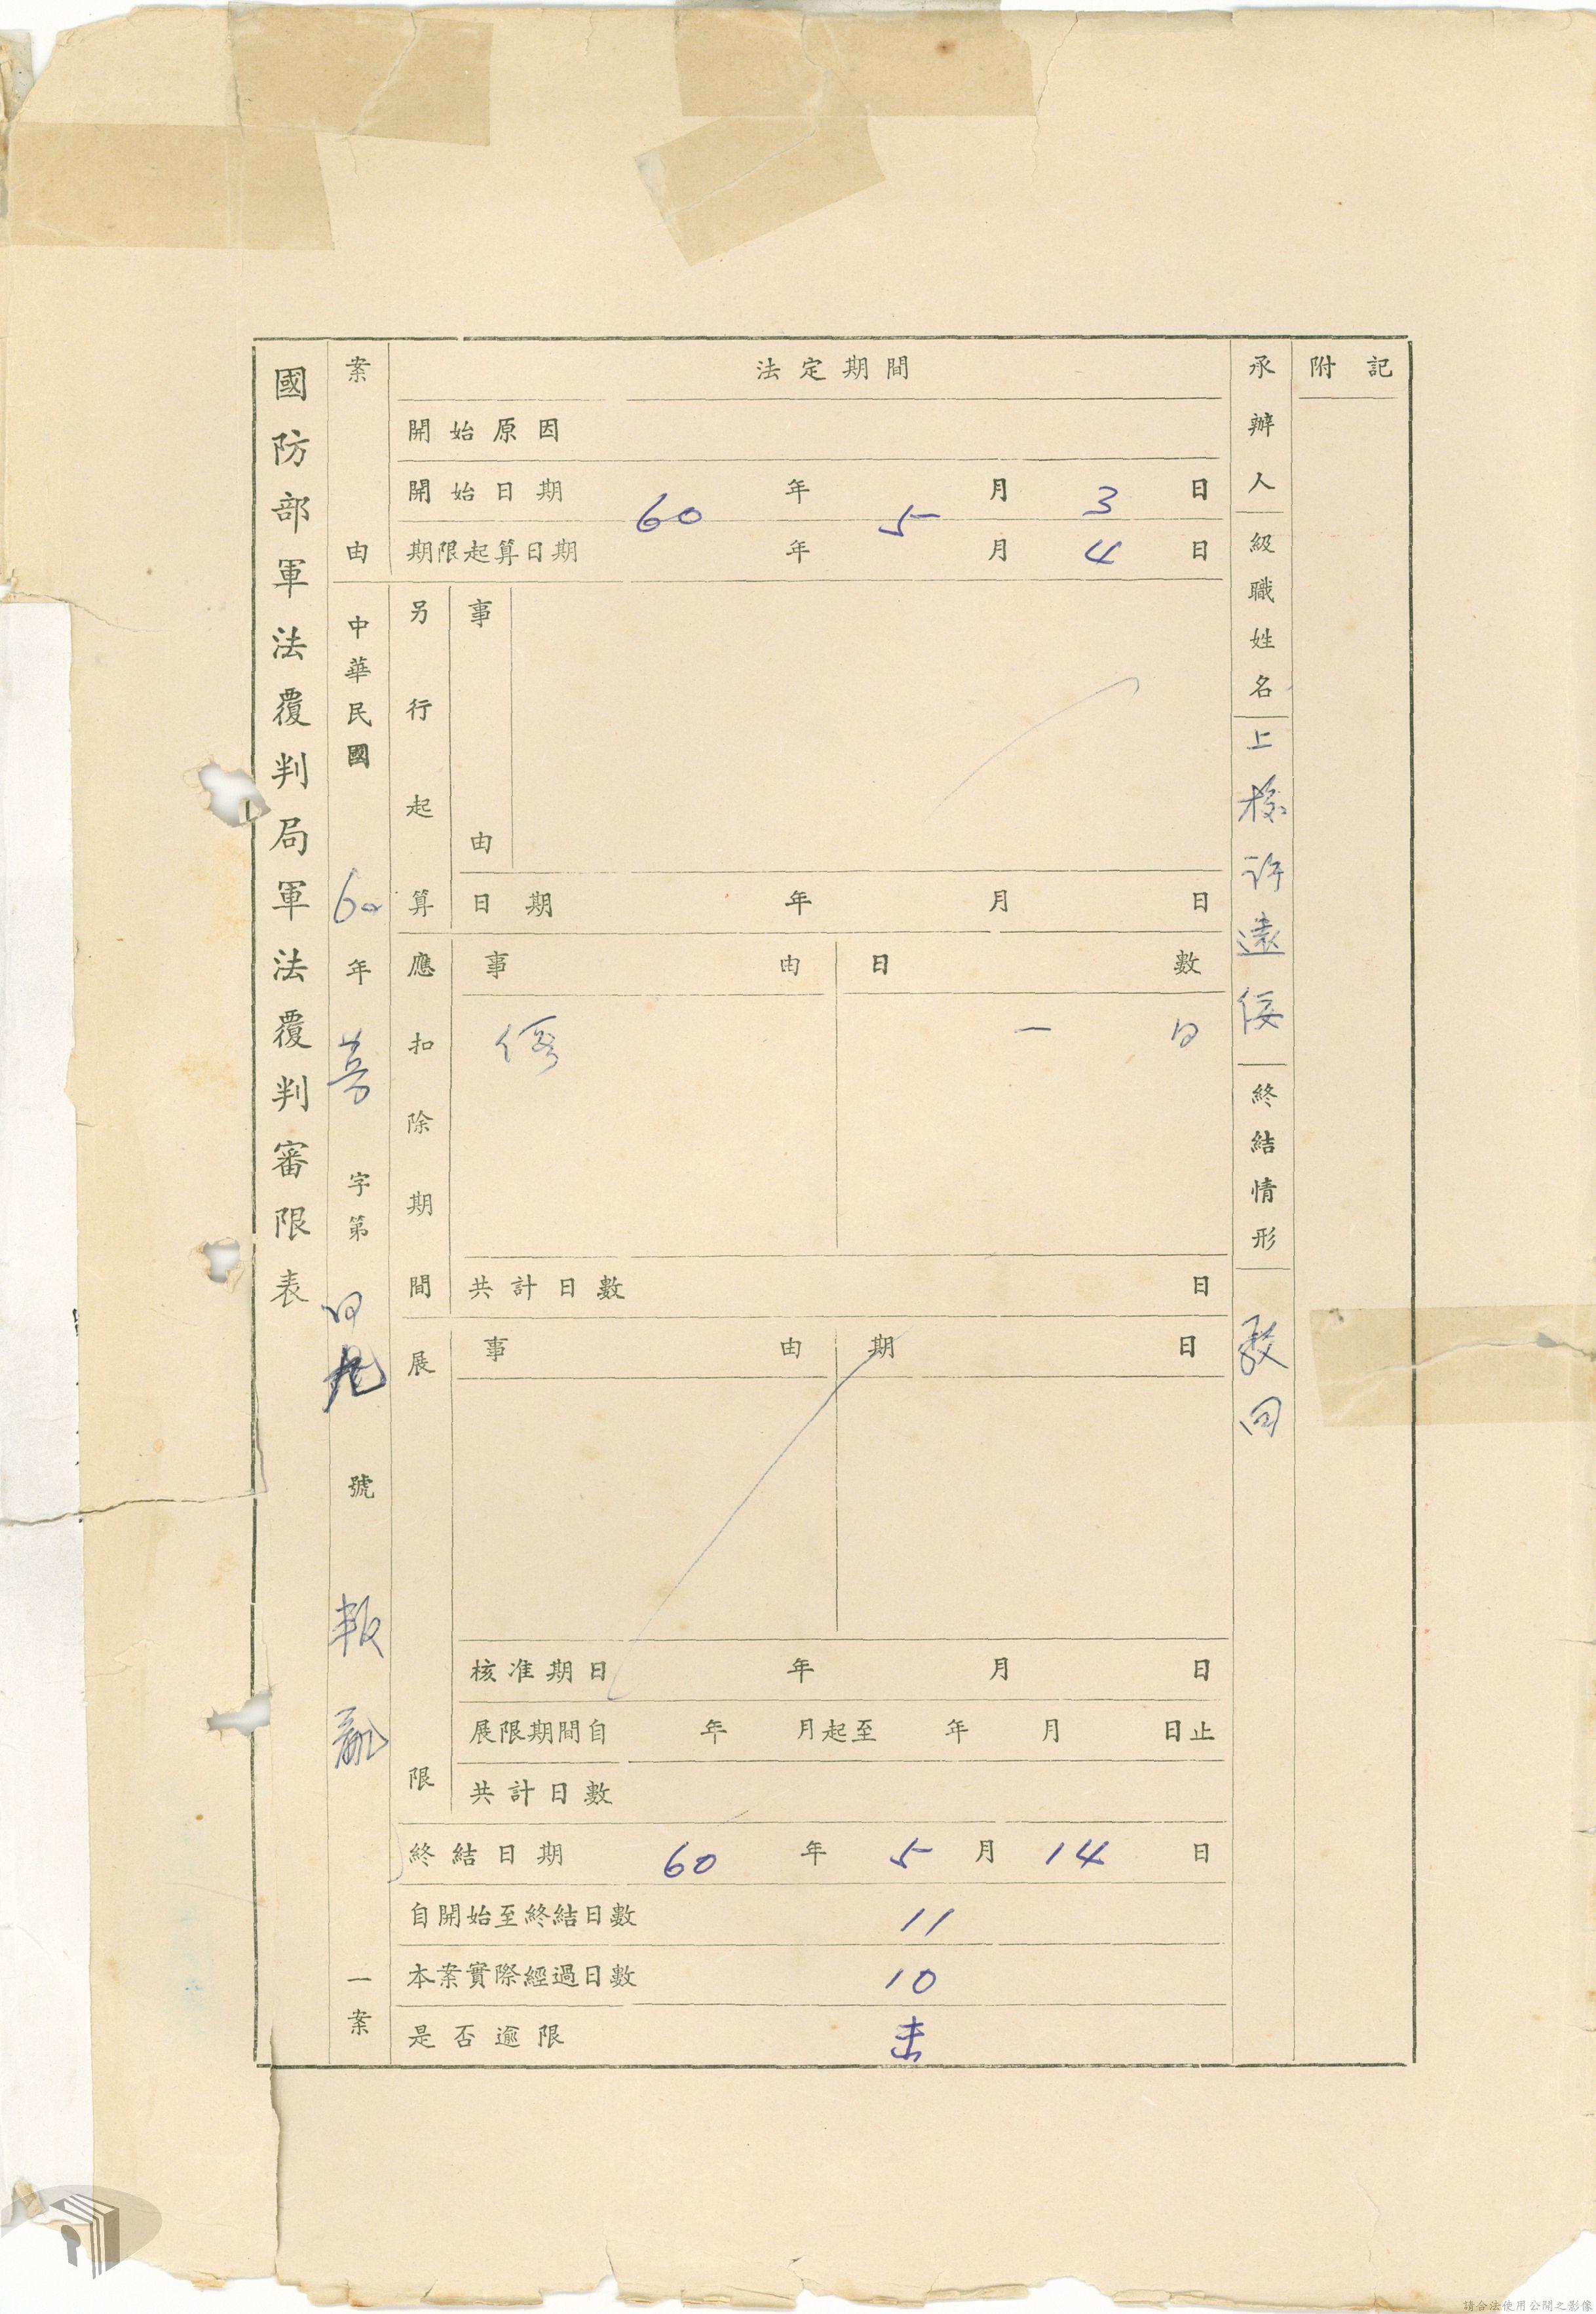 國防部軍法覆判局軍法覆判審限表
案由
中華民國60年 字第 號 叛亂 一案
法定期間
開始原因
開始日期 60 年 5 月 3 日
期限起算日期 年 月 4 日
另行起算
事由
日期 年 月 日
應扣除期間
事由 日數
一 日
共計日數 日
展限
事由 期日
核准期日 年 月 日
展限期間自 年 月起至 年 月 日止
共計日數
終結日期 60 年 5 月 14 日
自開始至終結日數 11
本案實際經過日數 10
是否逾限 未
承辦人級職姓名 上校 許遠
終結情形
附記
請合法使用公開之影像